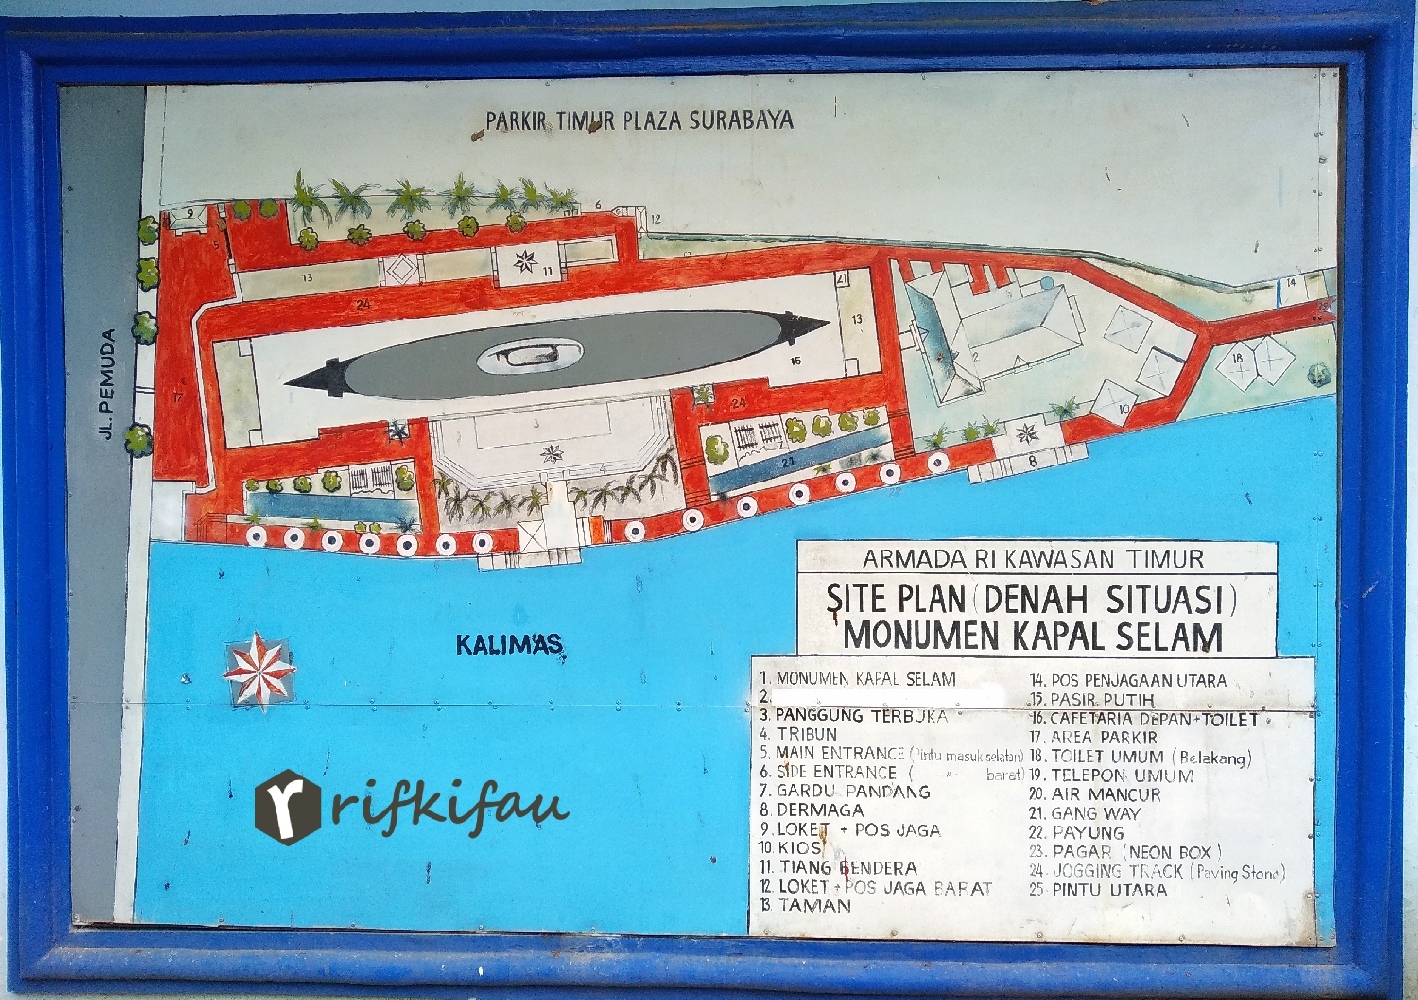 PARKIR TIMUR PLAZA SURABAYA
9
5
6
12
13
11
24
17
13
15
14
25
JL. PEMUDA
17
2
18
10
3
4
24
7
21
8
22
KALIMAS
rifkifau
ARMADA RI KAWASAN TIMUR
SITE PLAN (DENAH SITUASI)
MONUMEN KAPAL SELAM
1. MONUMEN KAPAL SELAM
2.
3. PANGGUNG TERBUKA
4. TRIBUN
5. MAIN ENTRANCE (Pintu masuk selatan)
6. SIDE ENTRANCE ( -"- barat)
7. GARDU PANDANG
8. DERMAGA
9. LOKET + POS JAGA
10. KIOS
11. TIANG BENDERA
12. LOKET + POS JAGA BARAT
13. TAMAN
14. POS PENJAGAAN UTARA
15. PASIR PUTIH
16. CAFETARIA DEPAN + TOILET
17. AREA PARKIR
18. TOILET UMUM (Belakang)
19. TELEPON UMUM
20. AIR MANCUR
21. GANG WAY
22. PAYUNG
23. PAGAR (NEON BOX)
24. JOGGING TRACK (Paving Stone)
25. PINTU UTARA